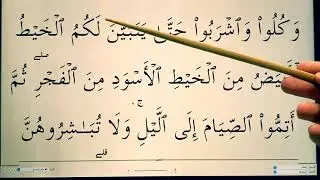 وَكُلُوا۟ وَٱشْرَبُوا۟ حَتَّىٰ يَتَبَيَّنَ لَكُمُ ٱلْخَيْطُ
ٱلْأَبْيَضُ مِنَ ٱلْخَيْطِ ٱلْأَسْوَدِ مِنَ ٱلْفَجْرِ ۖ ثُمَّ
أَتِمُّوا۟ ٱلصِّيَامَ إِلَى ٱلَّيْلِ ۚ وَلَا تُبَـٰشِرُوهُنَّ